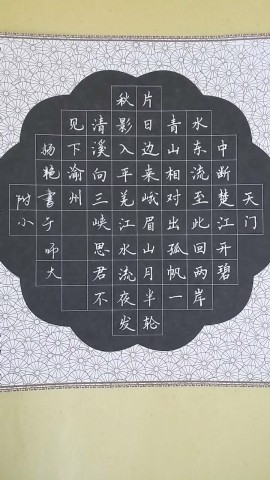 天门
中断楚江开碧
水东流至此回两岸
青山相对出孤帆一
片日边来峨眉山月半轮
秋影入平羌江水流夜发
清溪向三峡思君不
见下渝州
艳书于师大
附小